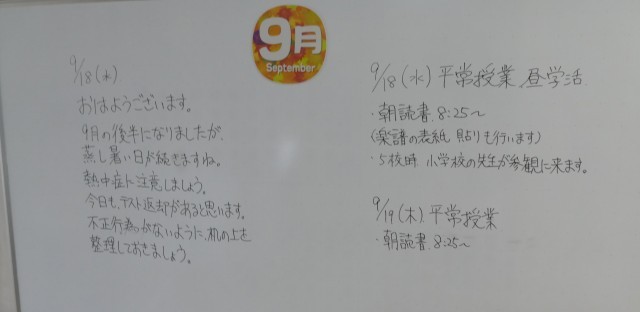 9月
September
9/18(水)
おはようございます。
9月の後半になりましたが、
蒸し暑い日が続きますね。
熱中症に注意しましょう。
今日も、テスト返却があると思います。
不正行為がないように、机の上を
整理しておきましょう。
9/18(水) 平常授業 昼学活
・朝読書 8:25〜
(楽譜の表紙 貼りも行います)
・5校時 小学校の先生が参観に来ます。
9/19(木) 平常授業
・朝読書 8:25〜